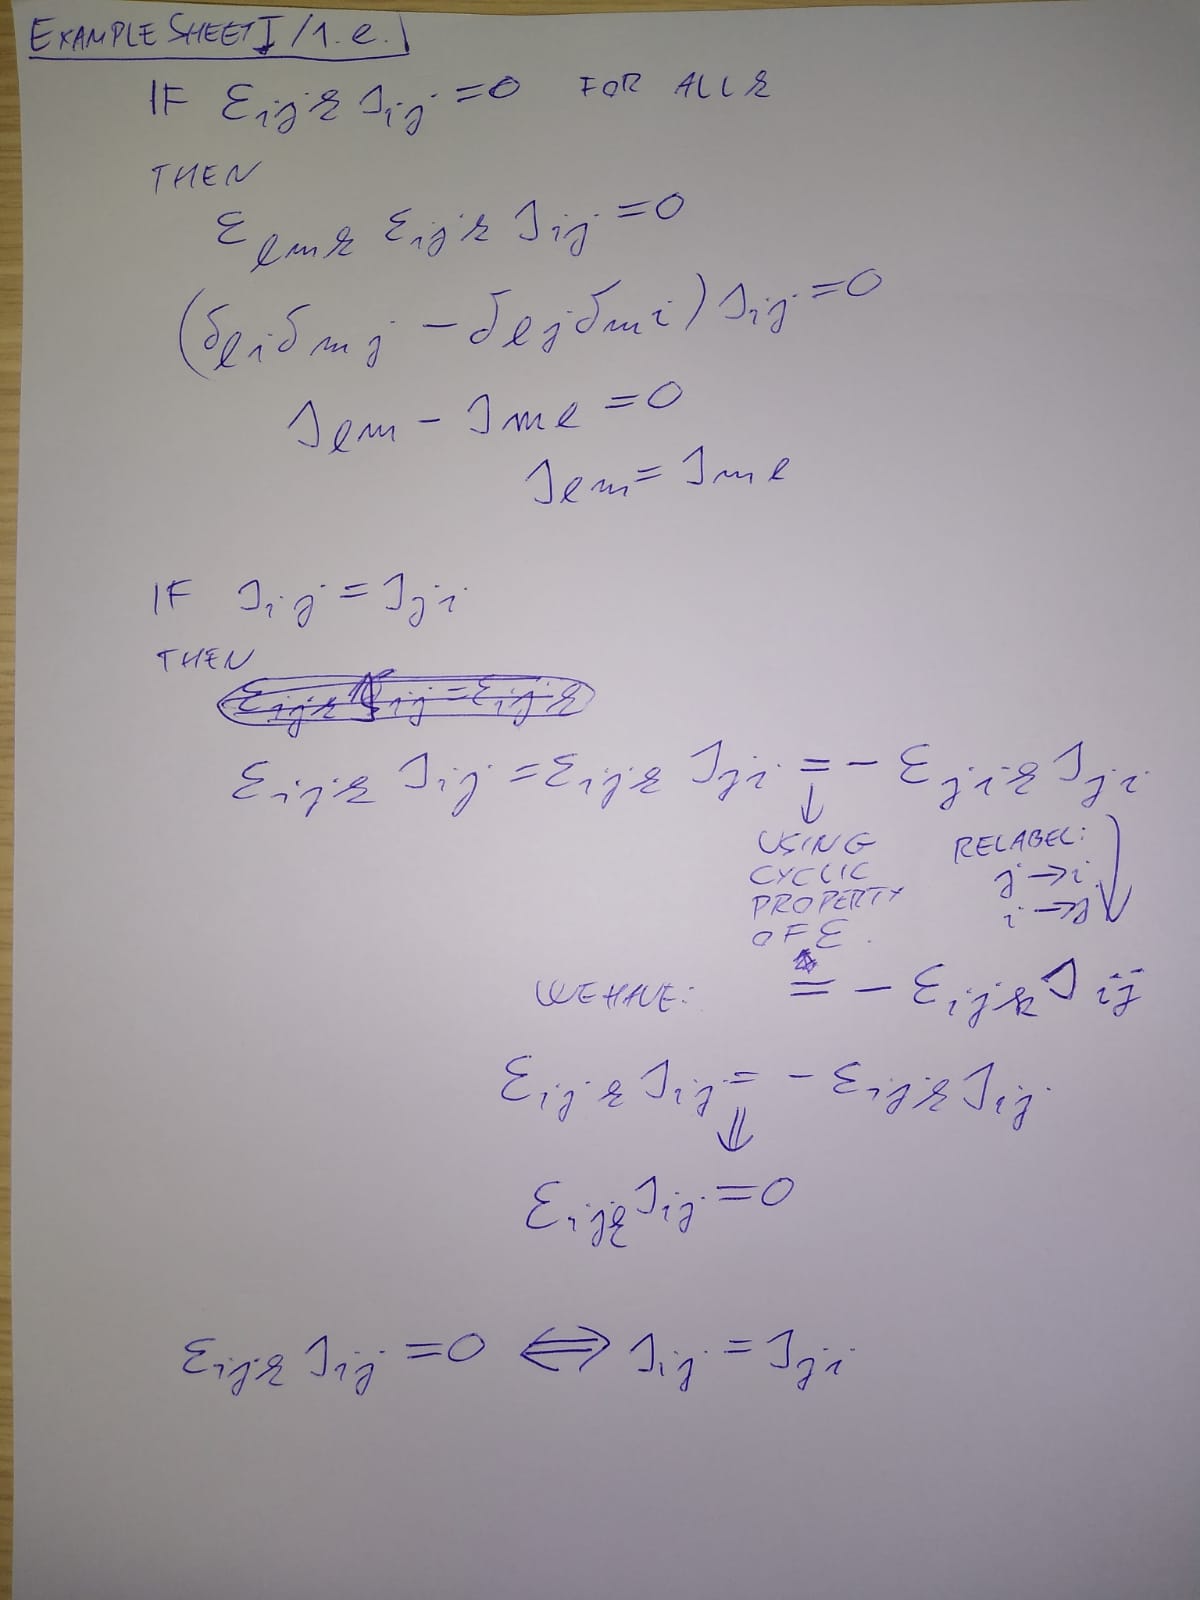 EXAMPLE SHEET I / 1. e.)
IF ε_{ijk} s_{ij} = 0 FOR ALL k
THEN
ε_{lmk} ε_{ijk} s_{ij} = 0
(δ_{li} δ_{mj} - δ_{lj} δ_{mi}) s_{ij} = 0
s_{lm} - s_{ml} = 0
s_{lm} = s_{ml}
IF s_{ij} = s_{ji}
THEN
ε_{ijk} s_{ij} = ε_{ijk} s_{ji} = - ε_{jik} s_{ji}
↓
USING
CYCLIC
PROPERTY
OF ε.
RELABEL:
j → i
i → j
= - ε_{ijk} s_{ij}
WE HAVE:
ε_{ijk} s_{ij} = - ε_{ijk} s_{ij}
⇓
ε_{ijk} s_{ij} = 0
ε_{ijk} s_{ij} = 0 ⟺ s_{ij} = s_{ji}